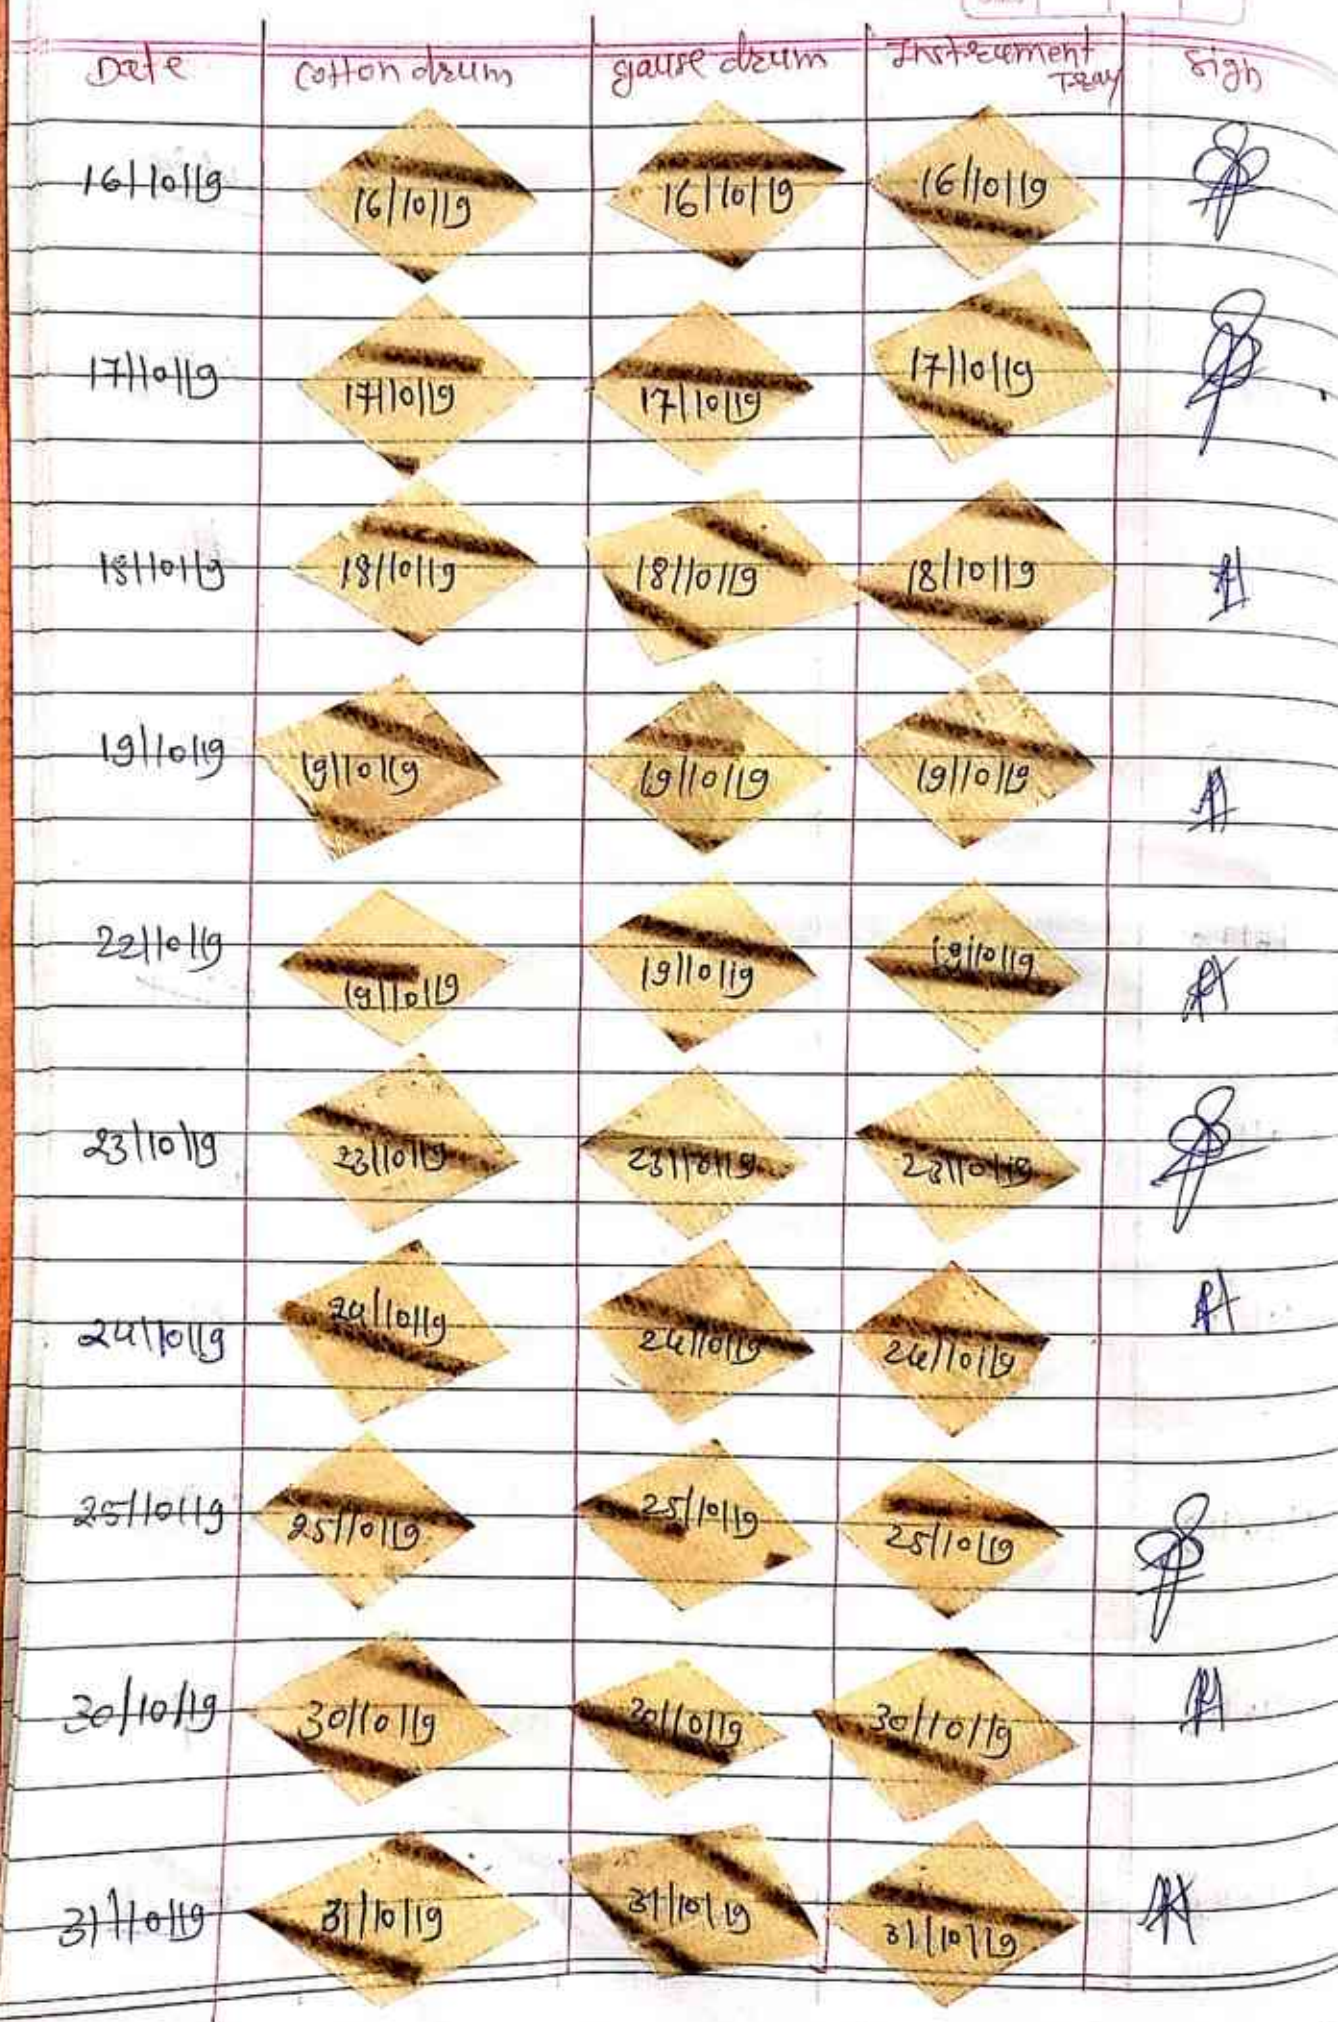 Date cotton drum gause drum Instrument Tray Sign
16/10/19 16/10/19 16/10/19 16/10/19
17/10/19 17/10/19 17/10/19 17/10/19
18/10/19 18/10/19 18/10/19 18/10/19
19/10/19 19/10/19 19/10/19 19/10/19
22/10/19 19/10/19 19/10/19 19/10/19
23/10/19 23/10/19 23/10/19 23/10/19
24/10/19 24/10/19 24/10/19 24/10/19
25/10/19 25/10/19 25/10/19 25/10/19
30/10/19 30/10/19 30/10/19 30/10/19
31/10/19 31/10/19 31/10/19 31/10/19